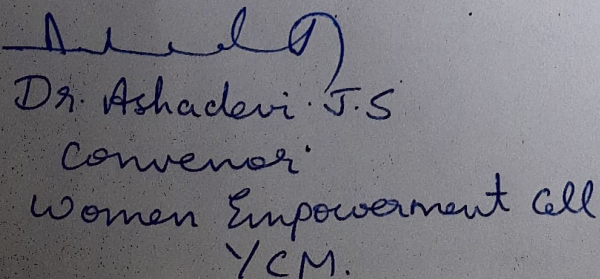 Dr. Ashadevi. J.S
Convenor
Women Empowerment Cell
YCM.